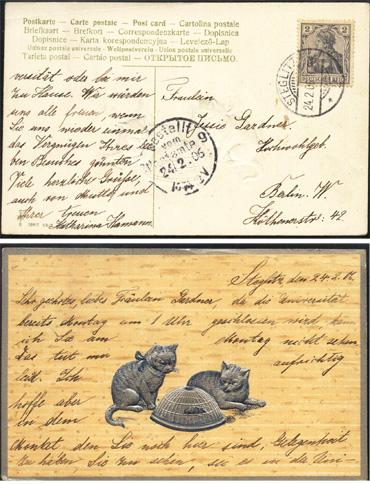 Postkarte — Carte postale — Post card — Cartolina postale
Briefkaart — Brefkort — Correspondenzkarte — Dopisnice
Dopisnice — Karta korespondencyjna — Levelező-Lap
Unione postale universelle — Weltpostverein — Union postale universelle
Tarjeta postal — ОТКРЫТОЕ ПИСЬМО.
oder bei mir
zu Hause. Wir würden
uns alle freuen, wenn
Sie uns wieder einmal
das Vergnügen Ihres
Besuches gönnten
Viele herzliche Grüsse,
auch von Mutter und
Ihrer treuen
Katharina Hamann
Fräulein
Gardner
Hochwohlgeb.
Berlin. W.
Köthenerstr: 42.
2 2
STEGLITZ
24.2.
Bestellt
vom
Postamte 9
24/2.05
Steglitz den 24.2.
Sehr geehrtes, liebes Fräulein Gardner, da die Universität
bereits Montag um 1 Uhr geschlossen wird, kann
ich Sie am Montag nicht sehen
Das tut mir aufrichtig
leid. Ich
hoffe aber
in dem
Moment, den Sie noch hier sind, Gelegenheit
zu haben, Sie zu sehen, sei es in der Uni-